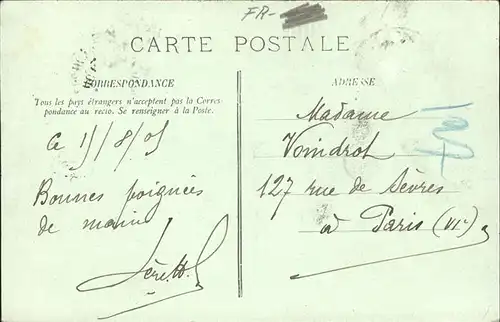 FR-
CARTE POSTALE
CORRESPONDANCE
Tous les pays étrangers n'acceptent pas la Corres-
pondance au recto. Se renseigner à la Poste.
Ce 15/8/05
Bonnes poignées
de main
ADRESSE
Madame
Voindrot
127 rue de Sèvres
à Paris (VIe)